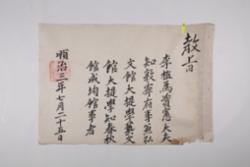 敎旨
李植爲資憲大夫
知敦寧府事兼弘
文館大提學藝文
館大提學知春秋
館成均館事者
順治三年七月二十五日